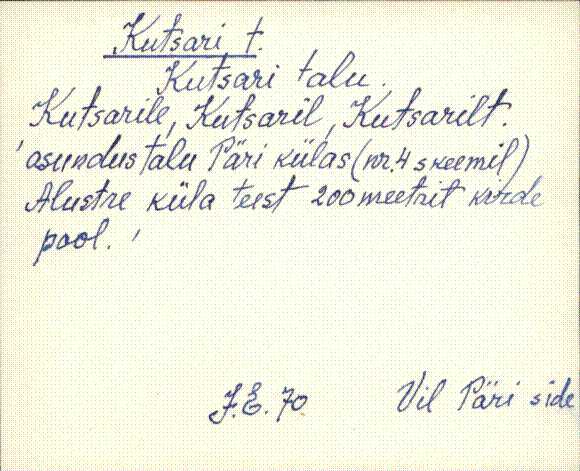 Kutsari t.
Kutsari talu.
Kutsarile, Kutsaril, Kutsarilt.
'asundustalu Päri külas (nr. 4 skeemil)
Alustre küla teest 200 meetrit kirde
pool.'
J.E. 70 Vil Päri side